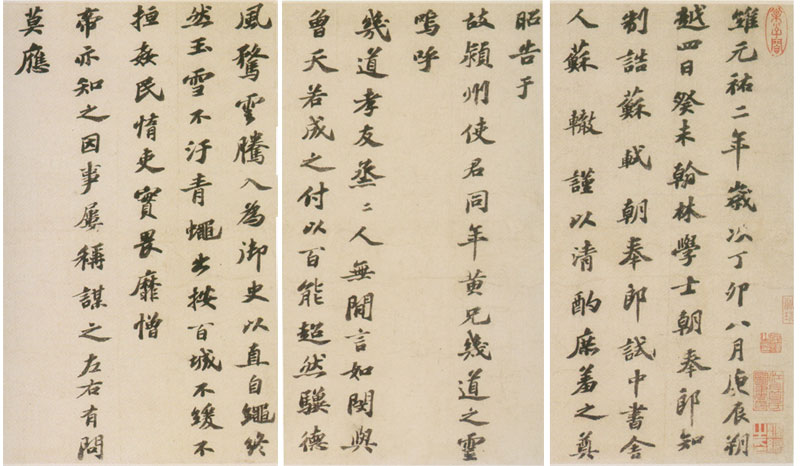 維元祐二年歲次丁卯八月庚辰朔
越四日癸未翰林學士朝奉郎知
制誥蘇軾朝奉郎試中書舍
人蘇轍謹以清酌庶羞之奠
昭告于
故潁州使君同年黃兄幾道之靈
嗚呼
幾道孝友烝〻人無間言如閔與
曾天若成之付以百能超然驥德
風騖雲騰入為御史以直自繩終
然玉雪不汙青蠅出按百城不緩不
搄姦民惰吏實畏靡憎
帝亦知之因事屢稱謀之左右有問
莫應